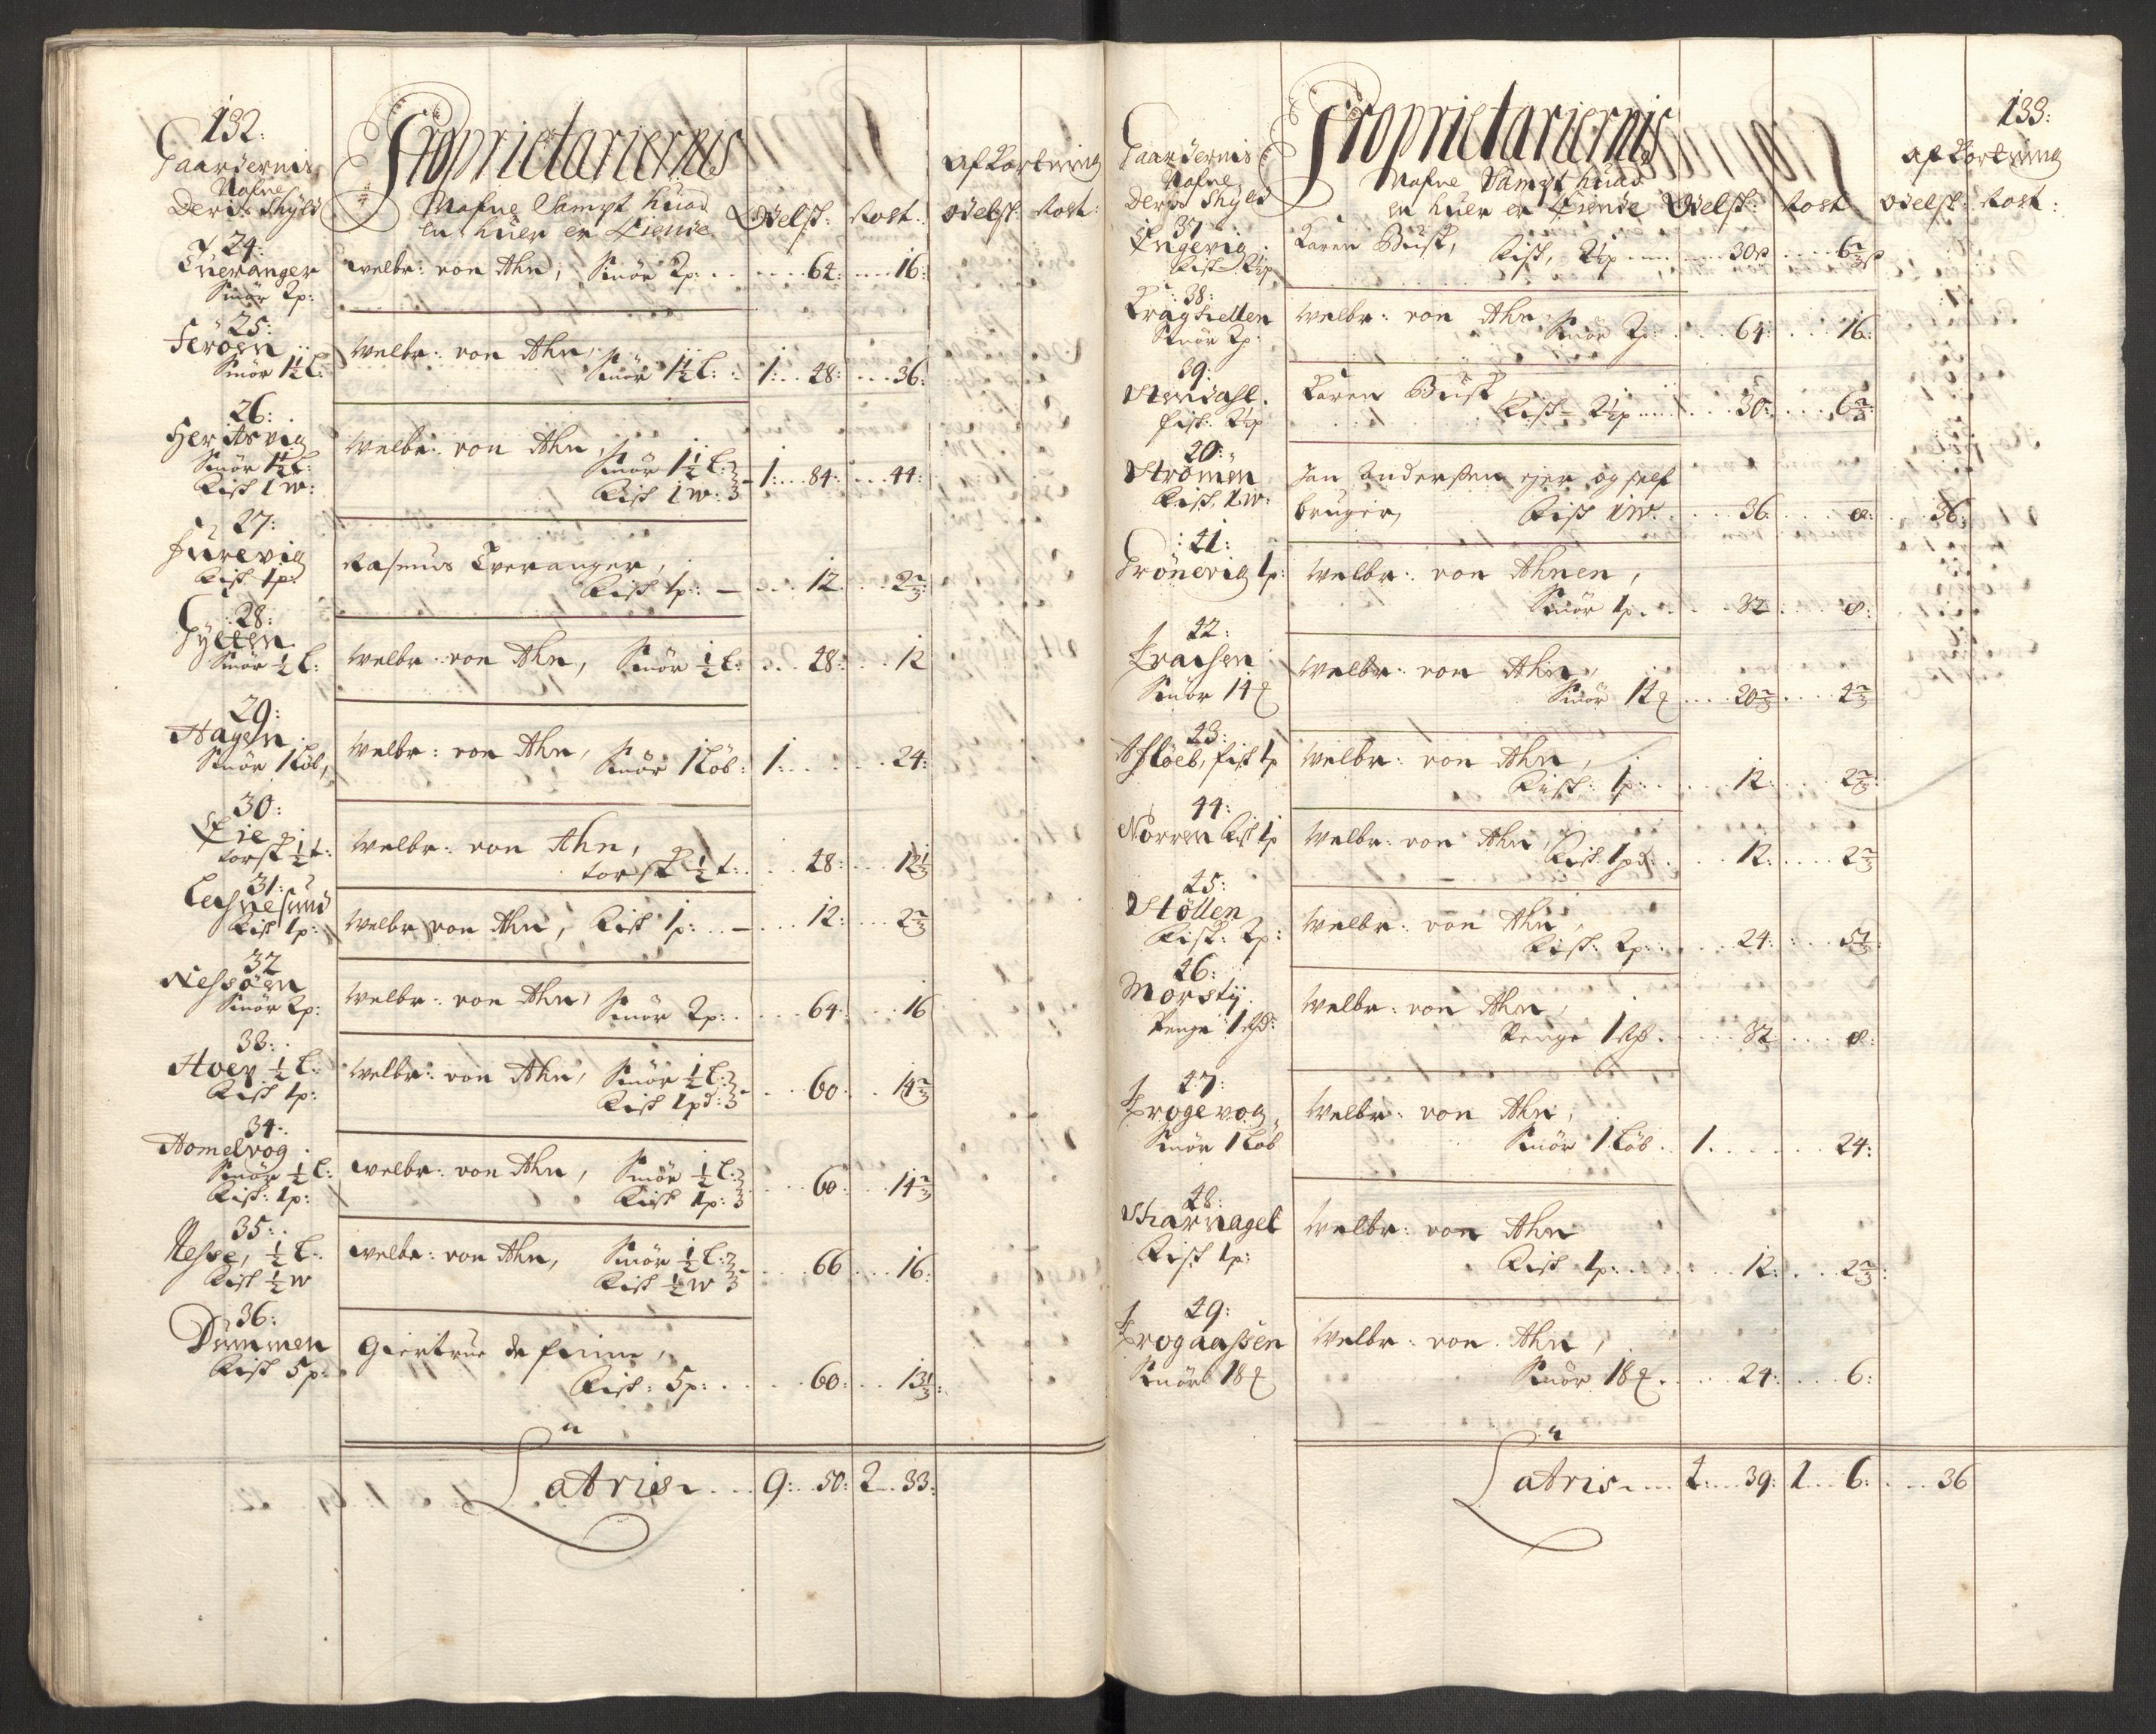 132:
Gaardernis
Nafne
Deris Skyld
Proprietariernis
Nafne Sampt huad
en huer er Eiende
Odelsk:
Rost:
afkortning
odelsk: Rost:
24:
Tueranger
Smör 2p:
welbr: von Ahn, Smör 2p: 64: 16:
25:
Feröen
Smör 1½ L:
Welbr: von Ahn,
Smör 1½ L: 1: 48: 36:
26:
Heritsvig
Smör 1½ L:
Fisk 1 w:
Welbr: von Ahn,
Smör 1½ L:
Fisk 1 w: 1: 84: 44:
27:
Furevig
Fisk 1p:
Rasmus Tveranger,
Fisk 1p: 12 2⅔
28:
Gylten
Smör ½ L:
Welbr: von Ahn, Smör ½ L: 48: 12
29:
Hagen
Smör 1 Löb,
Welbr: von Ahn, Smör 1 Löb: 1: 24:
30:
Eie
torsk ½ t:
Welbr: von Ahn,
torsk ½ t: 48: 12⅓
31:
Lechnesund
Fisk 1p:
Welbr von Ahn, Fisk 1p: 12: 2⅔
32
Nessöen
Smör 2p:
Welbr: von Ahn, Smör 2p: 64: 16
33:
Hoey ½ L:
Fisk 1p:
Welbr: von Ahn, Smör ½ L:
Fisk 1pd: 60: 14⅔
34:
Homelvog
Smör ½ L:
Fisk: 1p:
welbr: von Ahn, Smör ½ L:
Fisk 1p: 60: 14⅔
35:
Nesse, ½ L:
Fisk ½ w
welbr: von Ahn, Smör ½ L:
Fisk ½ w 66 16:
36:
Dummen
Fisk 5p:
Giertrue de finne,
Fisk: 5p: 60: 13⅓:
Latris 9: 50: 2 33:
133:
Gaardernis
Nafne
Deris Skyld
Proprietariernis
Nafne Sampt huad
en huer er Eiende
Odelsk:
Rost
afkortning
odelsk: Rost:
37
Engevig
Fisk 2½p
Karen Busk, Fisk, 2½p 30 s 6⅔ s
38:
Kragkiellen
Smör 2p:
Welbr: von Ahn
Smör 2p: 64: 16:
39:
Stendahl
fisk: 2½p
Karen Busk
Fisk 2½p 30: 6⅔:
40:
Strömen
Fisk, 1 w:
Jan Anderssen ejer og self
bruger, Fisk 1 W: 36 8: 36:
41:
Grönevig 1p:
Welbr: von Ahnen,
Smör 1p. 32 8:
42:
Smör 14
Welbr: von Ahn,
Smör 14 20⅔ 4⅔
43:
Aflöeb, fisk 1p
Welbr: von Ahn,
Fisk: 1p: 12: 2⅔:
44:
Norren Fisk 1p
Welbr: von Ahn,
Fisk: 1pd: 12: 2⅔
45:
Stöllen
Fisk: 2p:
Welbr: von Ahn,
Fisk: 2p: 24: 5⅓:
46:
Morstij
Penge 1
Welbr: von Ahn,
Penge 1 32 8:
47:
Krogevog
Smör 1 Löb
Welbr: von Ahn,
Smör 1 Löb 1 24:
48:
Skarnagel
Fisk 1p:
Welbr: von Ahn
Fisk 1p: 12: 2⅔:
49:
Krogaassen
Smör 18
Welbr: von Ahn,
Smör 18 24: 6:
Latris 4: 39: 1 6: 36